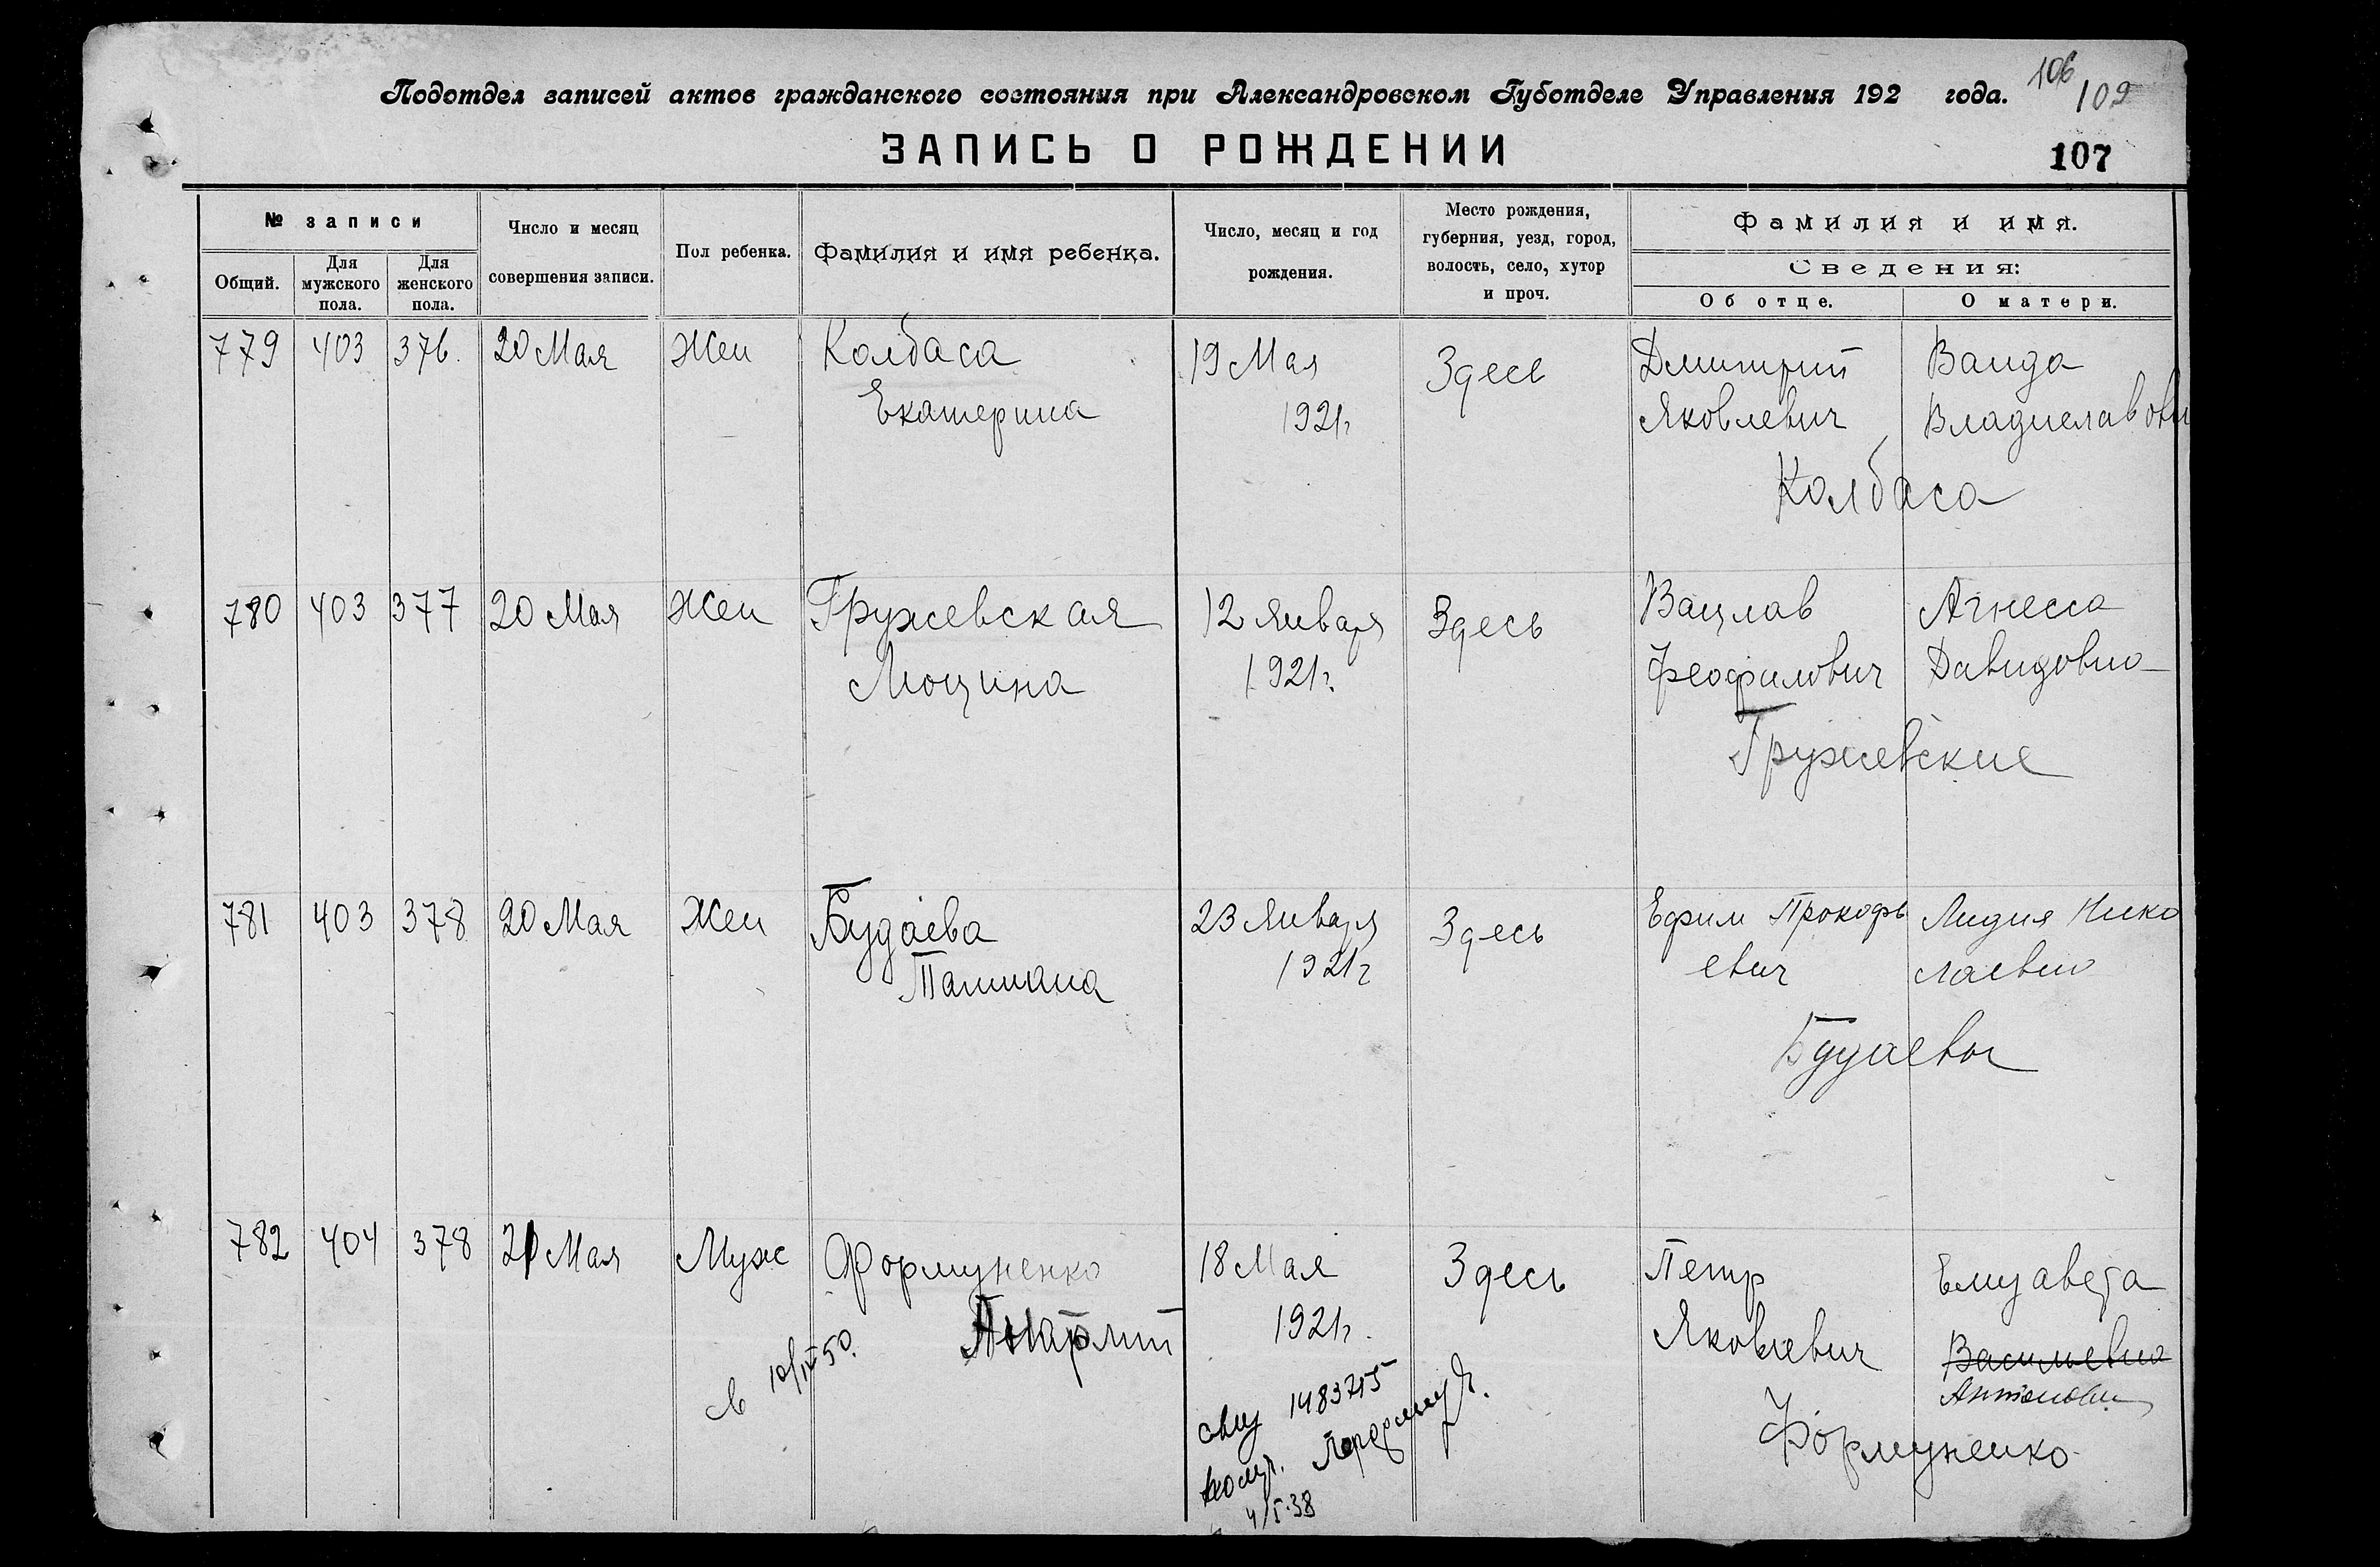 106
109
Подотдел записей актов гражданского состояния при Александровском Губотделе Управления 192 года.
ЗАПИСЬ О РОЖДЕНИИ
107
№ записи
Общий.
Для мужского пола.
Для женского пола.
Число и месяц совершения записи.
Пол ребенка.
Фамилия и имя ребенка.
Число, месяц и год рождения.
Место рождения, губерния, уезд, город, волость, село, хутор и проч.
Фамилия и имя.
Сведения:
Об отце.
О матери.
779 403 376. 20 Мая Жен Колбаса 19 Мая Здесь Дмитрий Ванда
Екатерина 1921г Яковлевич Владиславовн
Колбаса
780 403 377 20 Мая Жен Гружевская 12 Января Здесь Вацлав Агнесса
Люцина 1921г. Феофилович Давидовна
Гружевские
781 403 378 20 Мая Жен Будаева 23 Января Здесь Ефим Прокофь Лидия Нико
Татиана 1921г евич лаевна
Будаевы
782 404 378 21 Мая Муж Формуненко 18 Мая Здесь Петр Елизавета
1921г. Яковлевич Васильевна
Антоновн
Формуненко
10/IV 50.
1483715
4/I-38